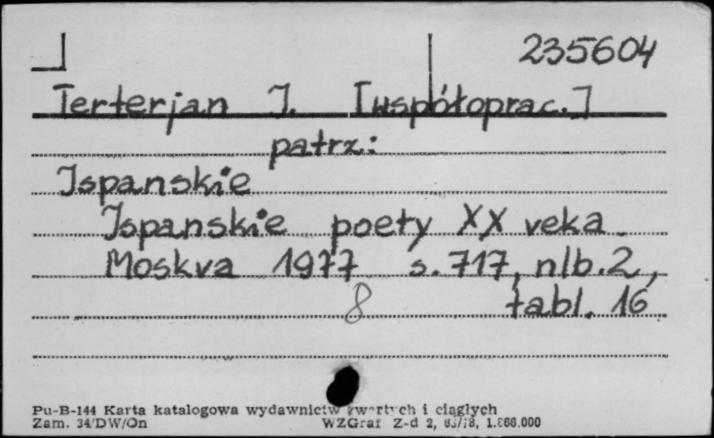 235604
Terterjan J. [współoprac.]
patrz:
Ispanskie
Ispanskie poety XX veka.
Moskva 1977 s. 717, nlb. 2,
8 tabl. 16
Pu-B-144 Karta katalogowa wydawnictw zwartych i ciągłych
Zam. 34/DW/On WZGraf Z-d 2, 1.866.000